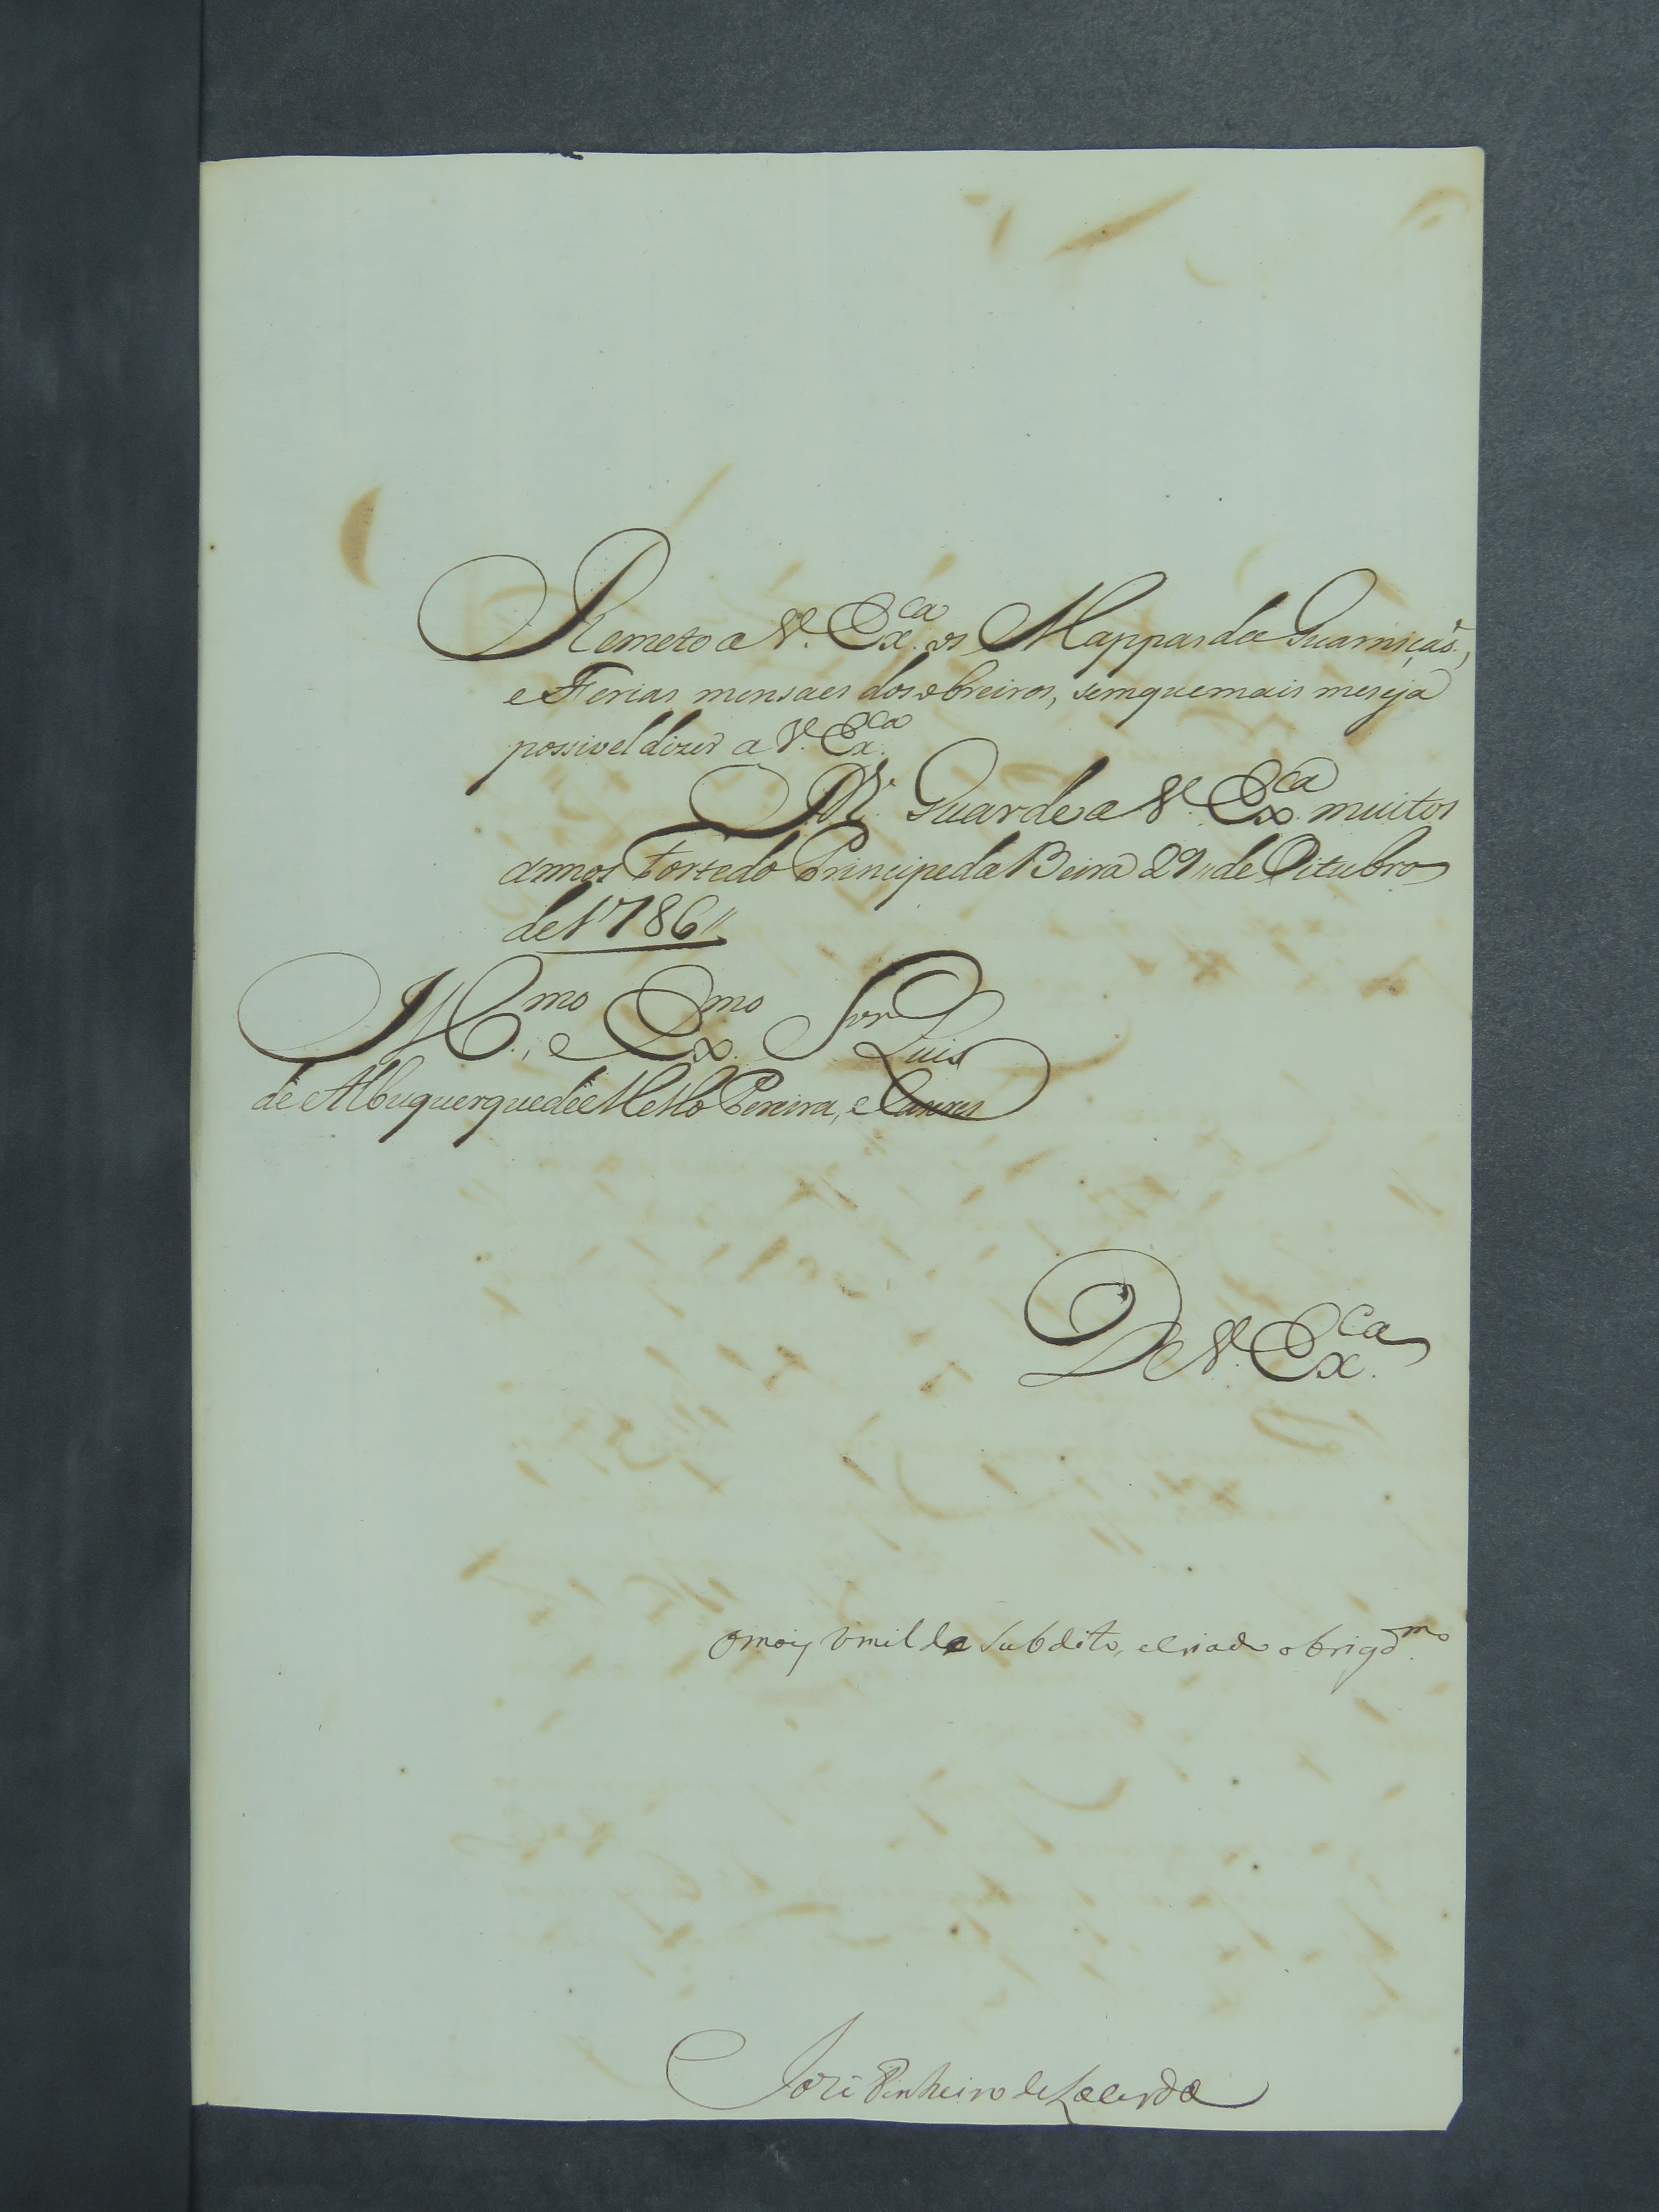 Remeto a V. Ex.ca os Mappas da Guarniçaõ,
e Ferias mensaes dos obreiros, sem que mais me seja
possivel dizer a V. Ex.ca
D.s Guarde a V. Ex.ca muitos
annos Forte do Principe da Beira 29 de Oitubro
de 1786
Ill.mo, e Ex.mo Snr Luis
de Albuquerque de Mello Pereira, e Caceres
De V. Ex.ca
O mais umilde Subdito, e criado obrigd.mo
Jozé Pinheiro de Lacerda